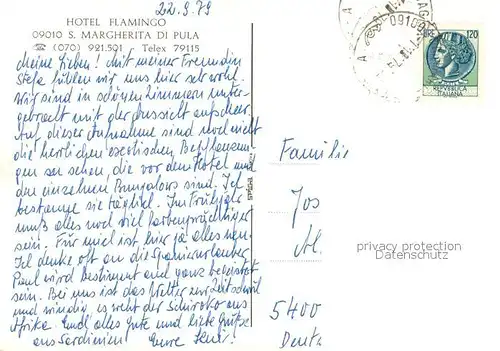 22.9.79
HOTEL FLAMINGO
09010 S. MARGHERITA DI PULA
☎ (070) 921.501 Telex 79115
Meine Lieben! Mit meiner Freundin
Stefa fühlen wir uns hier sehr wohl.
Wir sind in schönen Zimmern unter-
gebracht mit der Aussicht aufs Meer.
Auf dieser Aufnahme sind noch nicht
die herrlichen exotischen Bepflanzun-
gen zu sehen, die vor dem Hotel und
den einzelnen Bungalows sind. Ich
bestaune sie täglich. Im Frühjahr
muß alles noch viel farbenprächtiger
sein. Für mich ist hier ja alles neu.
Ich denke oft an die Spanienurlauber
Paul wird bestimmt auch ganz begeistert
sein. Bei uns ist das Wetter zur Zeit schwül
und windig, es weht der Schirokko aus
Afrika. Euch alles Gute und liebe Grüße
aus Sardinien! Eure
LIRE 120
REPVBBLICA
ITALIANA
09010
Familie
Jos
privacy protection
Datenschutz
5400
Deuts